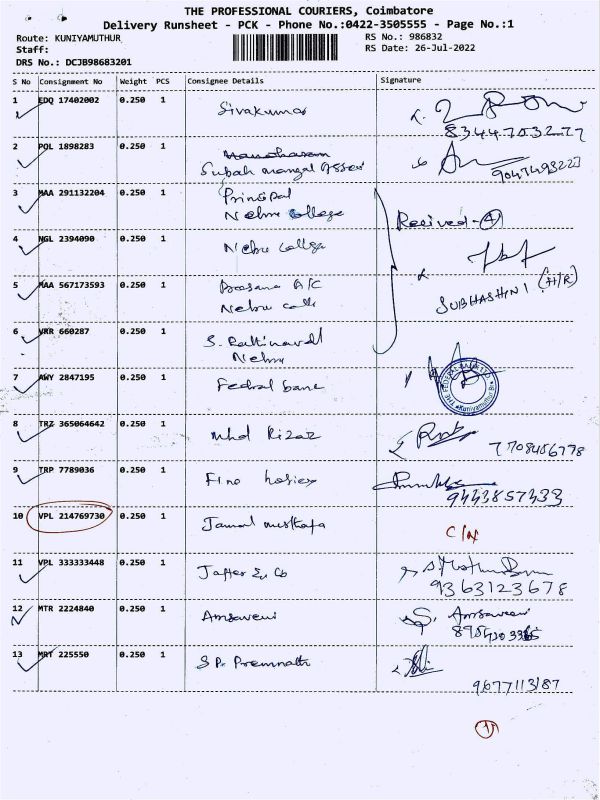 THE PROFESSIONAL COURIERS, Coimbatore
Delivery Runsheet - PCK - Phone No.:0422-3505555 - Page No.:1
Route: KUNIYAMUTHUR RS No.: 986832
Staff: RS Date: 26-Jul-2022
DRS No.: DCJB98683201
S No Consignment No Weight PCS Consignee Details Signature
1 EDQ 17402002 0.250 1 Sivakumar
8344703277
2 POL 1898283 0.250 1 Manoharan
Subah mangal
9047493223
3 MAA 291132204 0.250 1 Principal
Nehru College Received - 4
4 NGL 2394090 0.250 1 Nehru College
5 MAA 567173593 0.250 1 A/C SUBHASHINI (H/R)
Nehru
6 VRR 660287 0.250 1 S.
Nehru
7 AWY 2847195 0.250 1 Fedral bank
THE FEDERAL BANK LTD. Kuniyamuthur Br
8 TRZ 365064642 0.250 1 Mhd Rizaz
7708456778
9 TRP 7789036 0.250 1 Fine
9443857433
10 VPL 214769730 0.250 1 Jamal musthafa C/N
11 VPL 333333448 0.250 1 Jaffer & Co
9363123678
12 MTR 2224840 0.250 1 Amsaveni Amsaveni
13 MRT 225550 0.250 1 S P. Premnath
9677113187
1